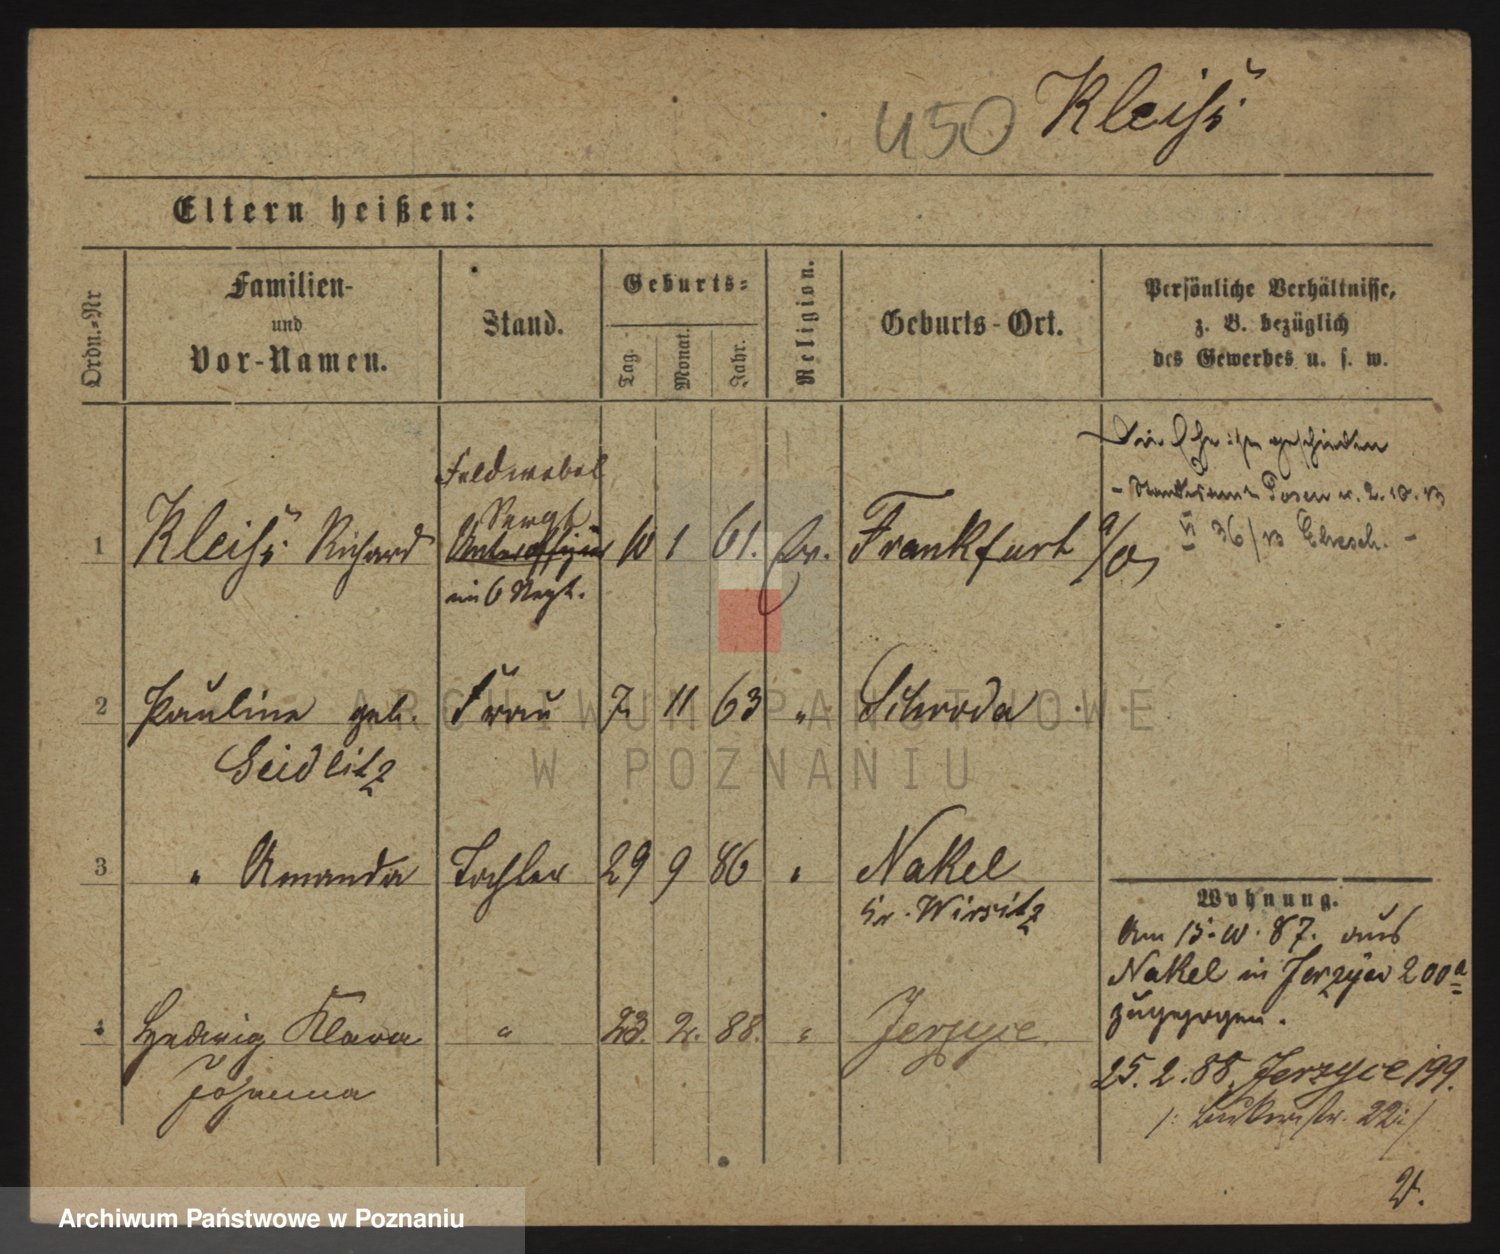 450 Kleiſs
Eltern heißen:
Ordn.-Nr
Familien-
und
Vor-Namen.
Stand.
Geburts-
Tag.
Monat.
Jahr.
Religion.
Geburts-Ort.
Persönliche Verhältnisse,
z. B. bezüglich
des Gewerbes u. s. w.
geschieden
Standesamt Posen 2. 10. 13
36/13
Feldwebel
Sergt
1 Kleiſs Richard Unteroffizier 10 1 61. ev. Frankfurt a/O,
im 6 Regt.
2 Pauline geb. Frau 7. 11 63 " Schroda
Seidlitz
3 " Amanda Tochter 29 9 86 " Nakel
Kr. Wirsitz
Wohnung.
Am 15. 10. 87. aus
Nakel in Jerzyce 200a
zugezogen.
4 Hedwig Klara " 23. 2. 88. " Jerzyce.
Johanna
25. 2. 88. Jerzyce 199.
22
ARCHIWUM PAŃSTWOWE
W POZNANIU
Archiwum Państwowe w Poznaniu